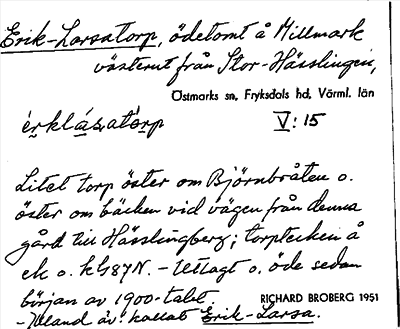 Erik-Larsatorp, ödetomt å Millmark
västerut från Stor-Hässlingen,
Östmarks sn, Fryksdals hd, Värml. län
èrklásatòrp V: 15
Litet torp öster om Björnbråten o.
öster om bäcken vid vägen från denna
gård till Hässlingberg; torptecken å
ek o. kG87N. - Utlagt o. öde sedan
början av 1900-talet.
RICHARD BROBERG 1951
- Ibland äv. kallat Erik-Larsa.